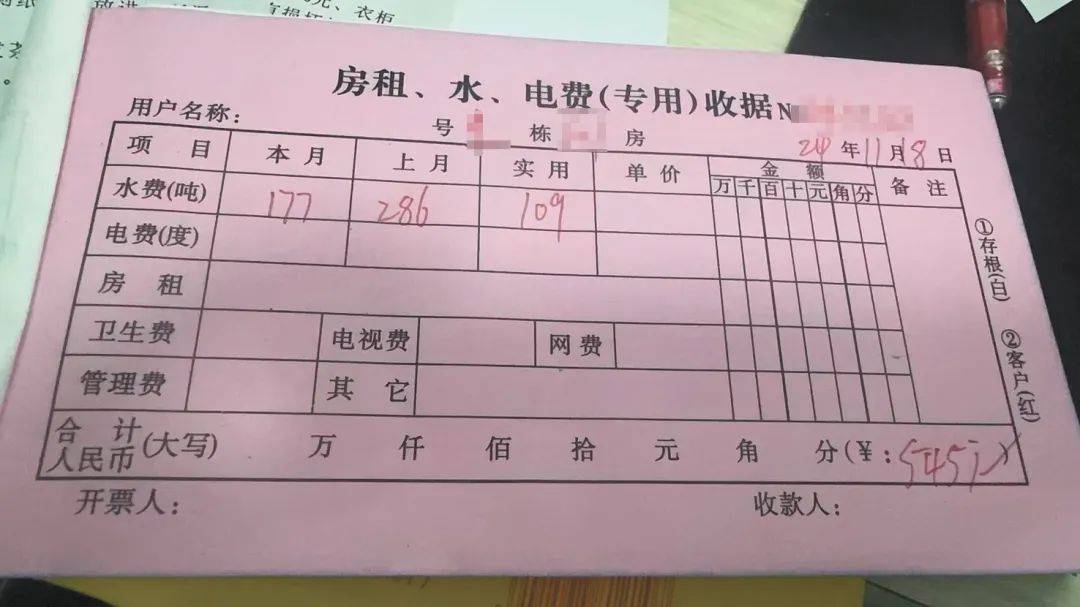 元、衣柜
房租、水、电费(专用)收据N
用户名称: 号 栋 房 24年11月18日
项目 本月 上月 实用 单价 金额 备注
万千百十元角分
水费(吨) 177 286 109
电费(度)
房租
卫生费 电视费 网费
管理费 其它
合计人民币(大写) 万 仟 佰 拾 元 角 分(¥:545元)
开票人: 收款人:
①存根(白)
②客户(红)